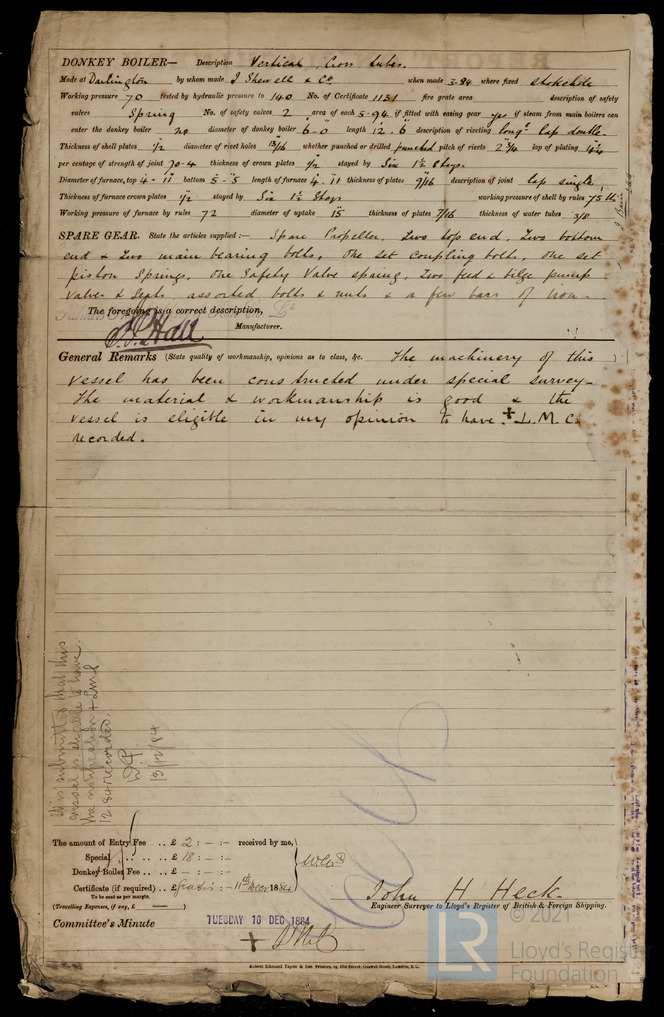 DONKEY BOILER— Description Vertical, Cross tubes.
Made at Darlington by whom made J Shewell & Co when made 3.84 where fixed stokehole
Working pressure 70 tested by hydraulic pressure to 140 No. of Certificate 1131 fire grate area description of safety
valves Spring No. of safety valves 2 area of each 5.94 if fitted with easing gear yes if steam from main boilers can
enter the donkey boiler no diameter of donkey boiler 6-0 length 12.6 description of riveting long! lap double
Thickness of shell plates 1/2 diameter of rivet holes 13/16 whether punched or drilled punched pitch of rivets 2 3/4 lap of plating
per centage of strength of joint 70.4 thickness of crown plates 1/2 stayed by Six 1 1/2 Stays.
Diameter of furnace, top 4-11 bottom 5-5 length of furnace 4.11 thickness of plates 9/16 description of joint lap single
Thickness of furnace crown plates 1/2 stayed by Six 1 1/2 Stays working pressure of shell by rules 75 lb
Working pressure of furnace by rules 72 diameter of uptake 15 thickness of plates 7/16 thickness of water tubes 3/8
SPARE GEAR. State the articles supplied:— Spare Propeller, Two top end, Two bottom
end & two main bearing bolts, One set coupling bolts, one set
piston springs, one Safety Valve spring, Two feed & bilge pump
valves & seats, assorted bolts & nuts & a few bars of iron.
The foregoing is a correct description,
J.P. Hall Manufacturer.
General Remarks (State quality of workmanship, opinions as to class, &c. The machinery of this
vessel has been constructed under special survey.
The material & workmanship is good & the
vessel is eligible in my opinion to have + L.M.C.
recorded.
It is submitted that this
vessel is eligible to have
the notification + LMC
12.84 recorded.
13/12/84
The amount of Entry Fee .. £ 2 : – : – received by me,
Special .. £ 18 : – : –
Donkey Boiler Fee .. £ – : – : –
Certificate (if required) .. £ gratis : – 11th Decr 1884
To be sent as per margin.
(Travelling Expenses, if any, £ )
John H Heck.
Engineer Surveyor to Lloyd's Register of British & Foreign Shipping.
Committee's Minute TUESDAY 16 DEC 1884
+
Robert Edmund Taylor & Son Printers, 19, Old Street, Goswell Road, London, E.C.
© 2021
LR
Lloyd's Register
Foundation